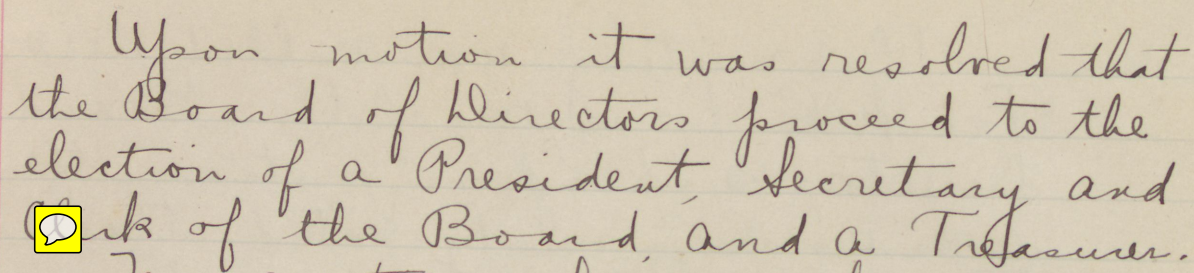 Upon motion it was resolved that
the Board of Directors proceed to the
election of a President, Secretary and
of the Board, and a Treasurer.